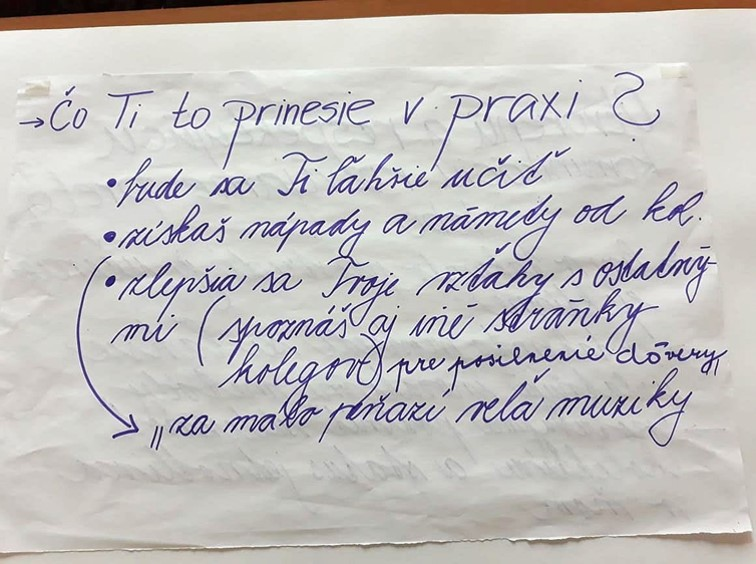 → Čo Ti to prinesie v praxi ?
• bude sa Ti ľahšie učiť
• získaš nápady a námety od kol.
• zlepšia sa Tvoje vzťahy s ostatný-
mi (spoznáš aj iné stránky
kolegov) pre posilnenie dôvery
"za málo peňazí veľa muziky"